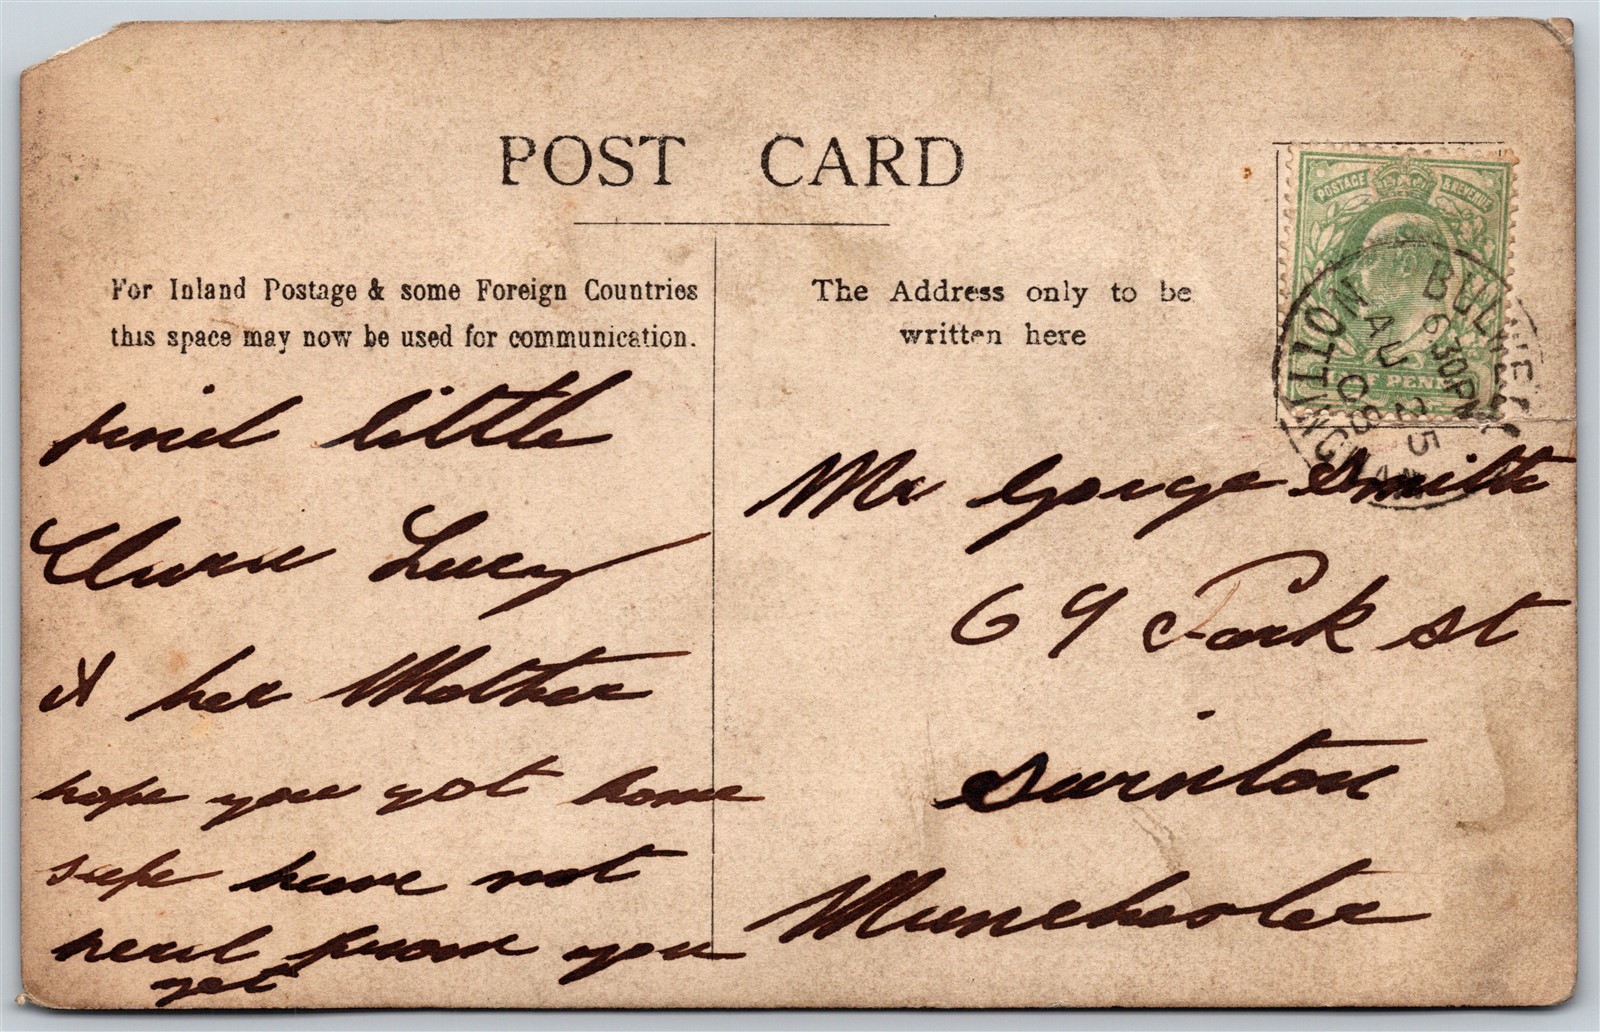 POST CARD
For Inland Postage & some Foreign Countries
this space may now be used for communication.
The Address only to be
written here
POSTAGE & REVENUE
HALF PENNY
BULWELL
NOTTINGHAM
6 30PM
AU 25
08
find little
Clara Lucy
& her Mother
hope you got home
safe have not
heard from you
yet
Mr George Smith
69 Park st
Swinton
Manchester